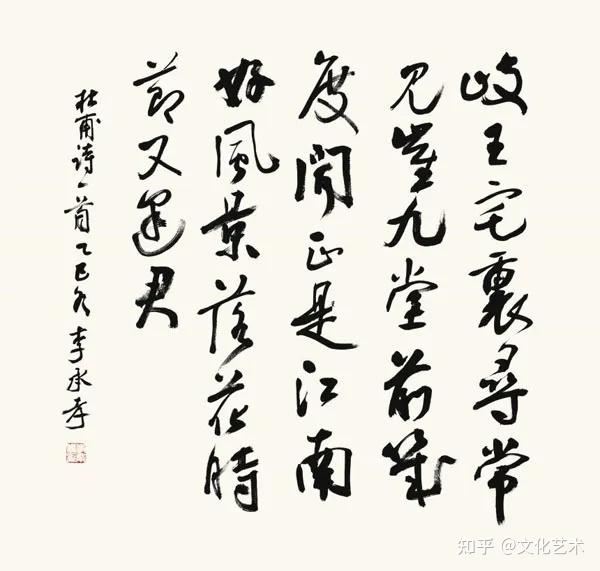 岐王宅裏尋常
見崔九堂前幾
度聞正是江南
好風景落花時
節又逢君
杜甫詩一首乙巳冬李承孝
知乎 @文化艺术